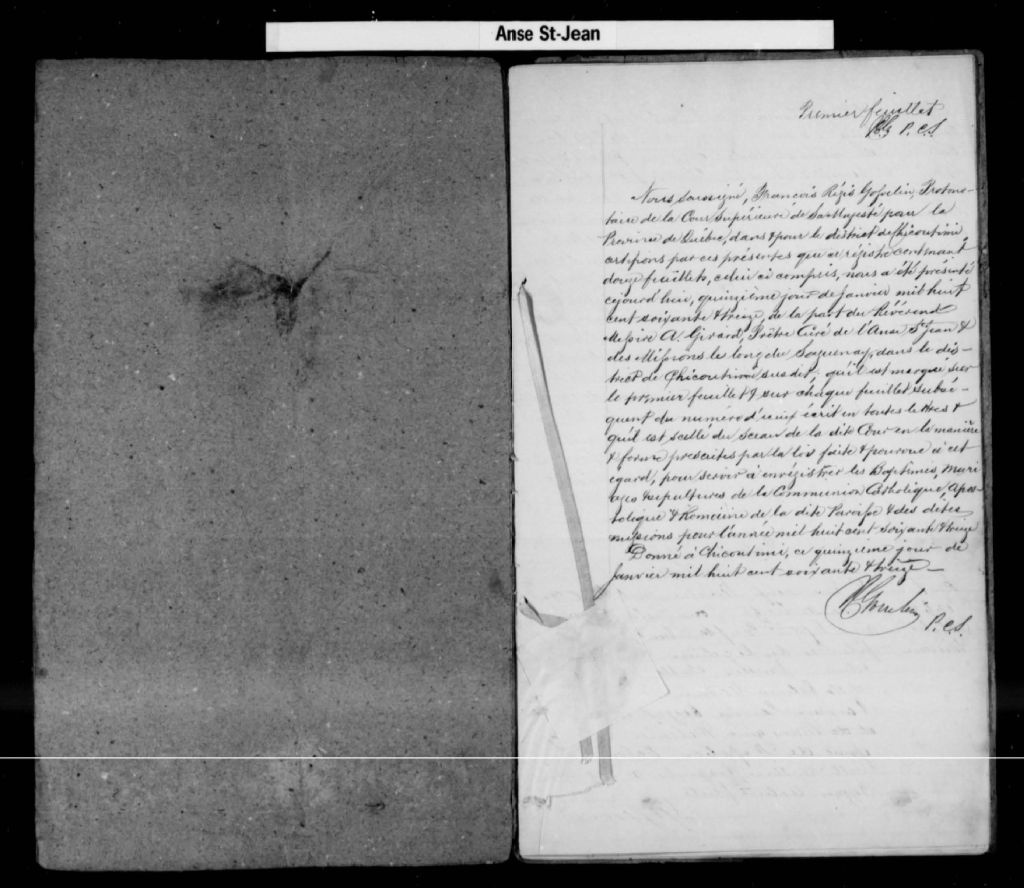 Anse St-Jean
Premier feuillet
P. C. S.
Nous soussigné, François Régis Gosselin, Protono-
taire de la Cour Supérieure de Sa Majesté pour la
Province de Québec, dans & pour le district de Chicoutimi,
certifions par ces présentes que ce régistre contenant
douze feuillets, celui ci compris, nous a été présenté
cejourd'hui, quinzième jour de janvier mil huit
cent soixante & treize, de la part du Révérend
Messire A. Girard, Prêtre Curé de l'Anse St Jean &
des Missions le long du Saguenay, dans le dis-
trict de Chicoutimi susdit; qu'il est marqué sur
le premier feuillet & sur chaque feuillet subsé-
quent du numéro d'iceux écrit en toutes lettres &
qu'il est scellé du sceau de la dite Cour en la manière
& forme prescrites par la loi faite & pourvue à cet
égard, pour servir à enrégistrer les Baptêmes, Mari
ages & sépultures de la Communion Catholique, Apos-
tolique & Romaine de la dite Paroisse & des dites
missions pour l'année mil huit cent soixante & treize
Donné à Chicoutimi, ce quinzième jour de
Janvier mil huit cent soixante & treize —
Gosselin
P. C. S.